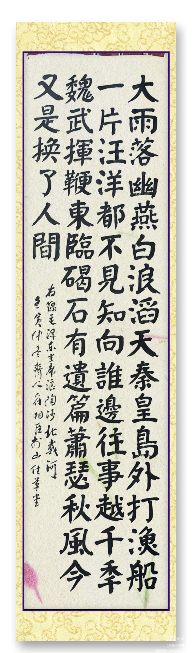 大雨落幽燕白浪滔天秦皇島外打漁船
一片汪洋都不見知向誰邊往事越千年
魏武揮鞭東臨碣石有遺篇蕭瑟秋風今
又是換了人間
右錄毛澤東主席浪淘沙北戴河